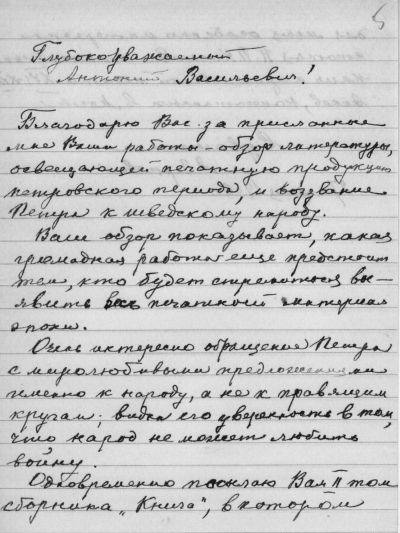 5
Глубокоуважаемый
Антоний Васильевич!
Благодарю Вас за присланные
мне Ваши работы – обзор литературы,
освещающей печатную продукцию
петровского периода, и воззвание
Петра к шведскому народу.
Ваш обзор показывает, какая
громадная работа еще предстоит
тем, кто будет стремиться вы-
явить весь печатной материал
эпохи.
Очень интересно обращение Петра
с миролюбивыми предложениями
именно к народу, а не к правящим
кругам; видна его уверенность в том,
что народ не может любить
войну.
Одновременно посылаю Вам II том
сборника „Книга", в котором